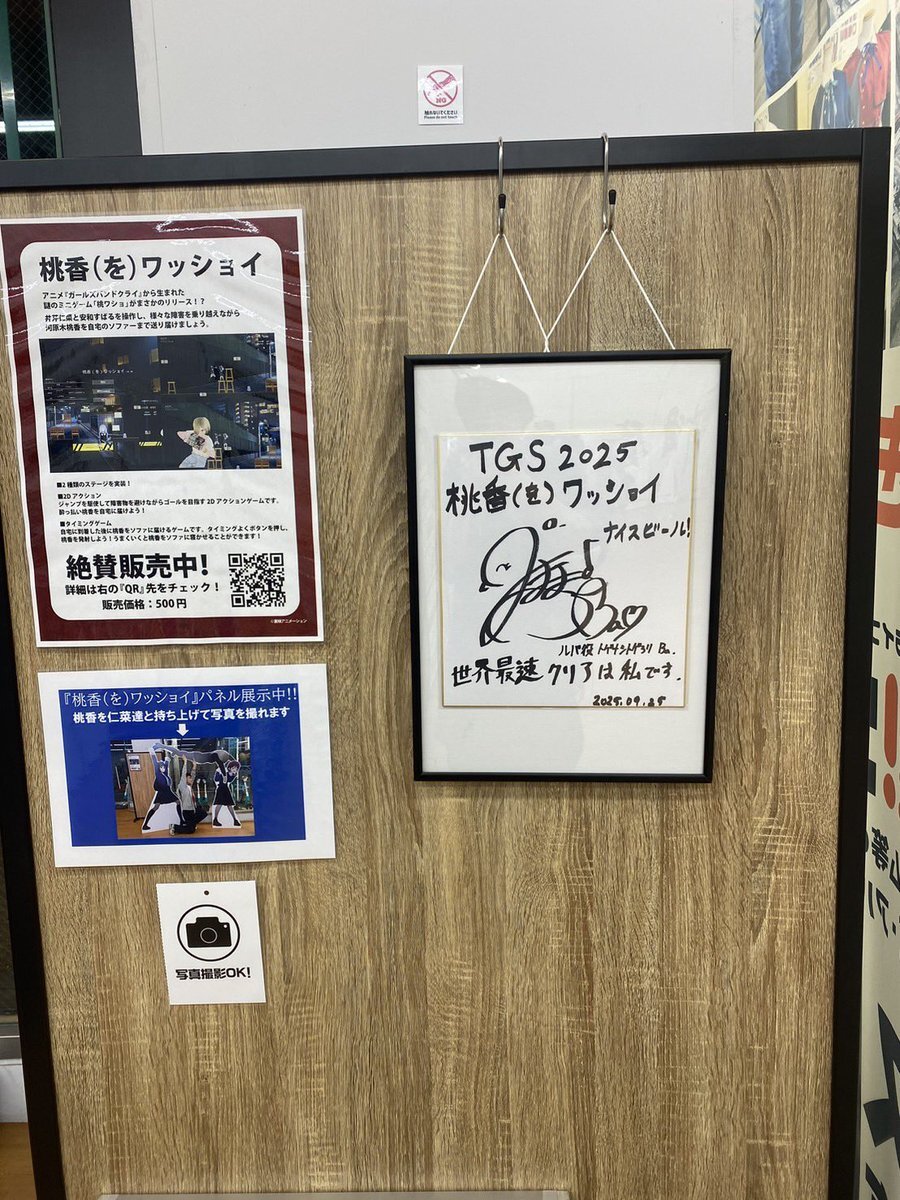 NG
触れないでください
Please do not touch
桃香(を)ワッショイ
アニメ『ガールズバンドクライ』から生まれた
謎のミニゲーム「桃ワショ」がまさかのリリース!?
井芹仁菜と安和すばるを操作し、様々な障害を乗り越えながら
河原木桃香を自宅のソファーまで送り届けましょう。
桃香(を)ワッショイ
■2種類のステージを実装!
■2Dアクション
ジャンプを駆使して障害物を避けながらゴールを目指す2Dアクションゲームです。
酔っ払い桃香を自宅に届けよう!
■タイミングゲーム
自宅に到着した後に桃香をソファに届けるゲームです。タイミングよくボタンを押し、
桃香を発射しよう!うまくいくと桃香をソファに寝かせることができます!
絶賛販売中!
詳細は右の『QR』先をチェック!
販売価格:500円
©東映アニメーション
『桃香(を)ワッショイ』パネル展示中!!
桃香を仁菜達と持ち上げて写真を撮れます
写真撮影OK!
TGS 2025
桃香(を)ワッショイ
ナイスビール!
ルパ役 トゲナシトゲアリ Ba.
世界最速 クリアは私です.
2025.09.25